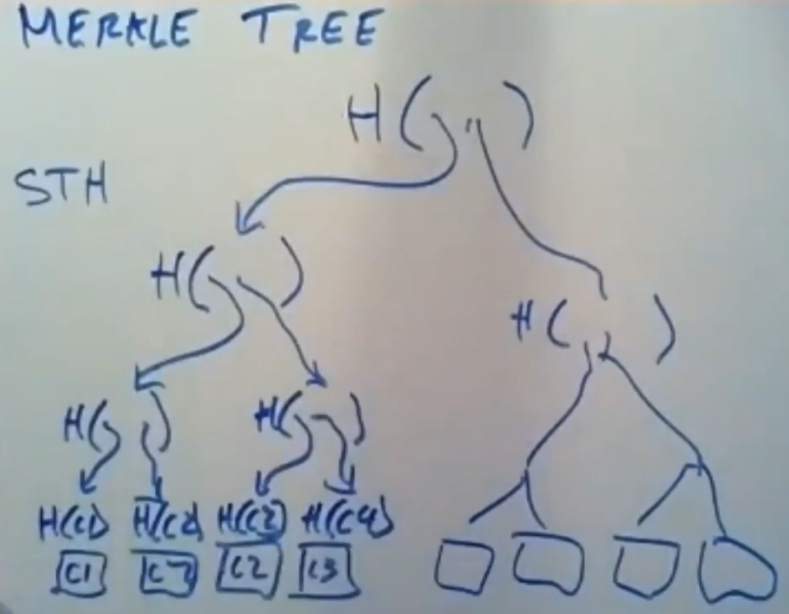 MERKLE TREE
H( , )
STH
H( )
H( )
H( ) H( )
H(C1) H(C2) H(C3) H(C4)
C1 C2 C3